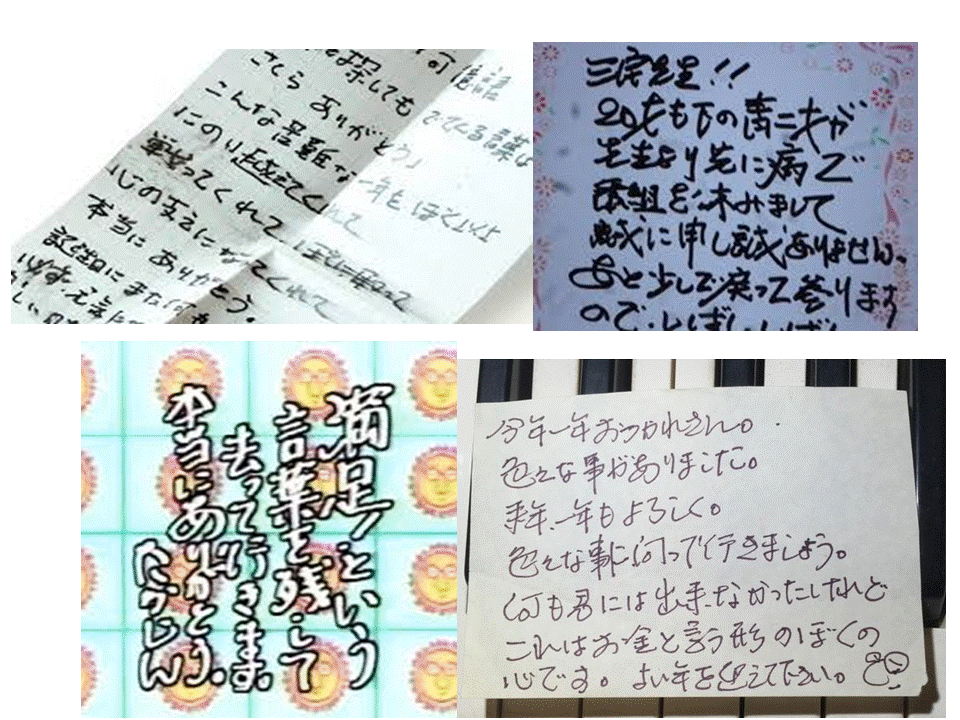 探しても
でてくる言葉は
さくら ありがとう」
こんな苦難な一年を ぼく以上
にのり越えてくれて
頑張ってくれて、
心の支えになってくれて
本当に ありがとう。
三宅先生!!
20才も下の青二才が
先生より先に病で
番組を休みまして
誠に申し訳ありません、
あと少しで戻って参ります
ので、しばし、しばし
満足!という
言葉を残して
去って行きます。
本当にありがとう。
たかじん
今年一年おつかれさん。
色々な事がありました。
来年一年もよろしく。
色々な事に向って行きましょう。
何も君には出来なかったけれど
これはお金と言う形のぼくの
心です。よい年を迎えて下さい。